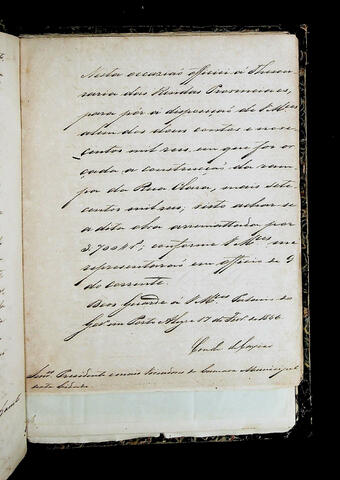 Nesta occasião officiei á Thesou
raria das Rendas Provinciaes,
para pôr a disposição de V.Mces
alem dos dous contos e nove
centos mil reis, em que foi or
çada a construcção da ram
pa da Rua Clara, mais sete
centos mil reis, visto achar-se
a dita obra arrematada por
conforme V.Mces me
representarão em officio de 9
do corrente.
Deos Guarde á V.Mces Palacio do
Gov. em Porto Alegre 17 de Fevr. de 1846
Conde de Caxias
Snrs. Presidente e mais Vereadores da Camara Municipal
desta Cidade